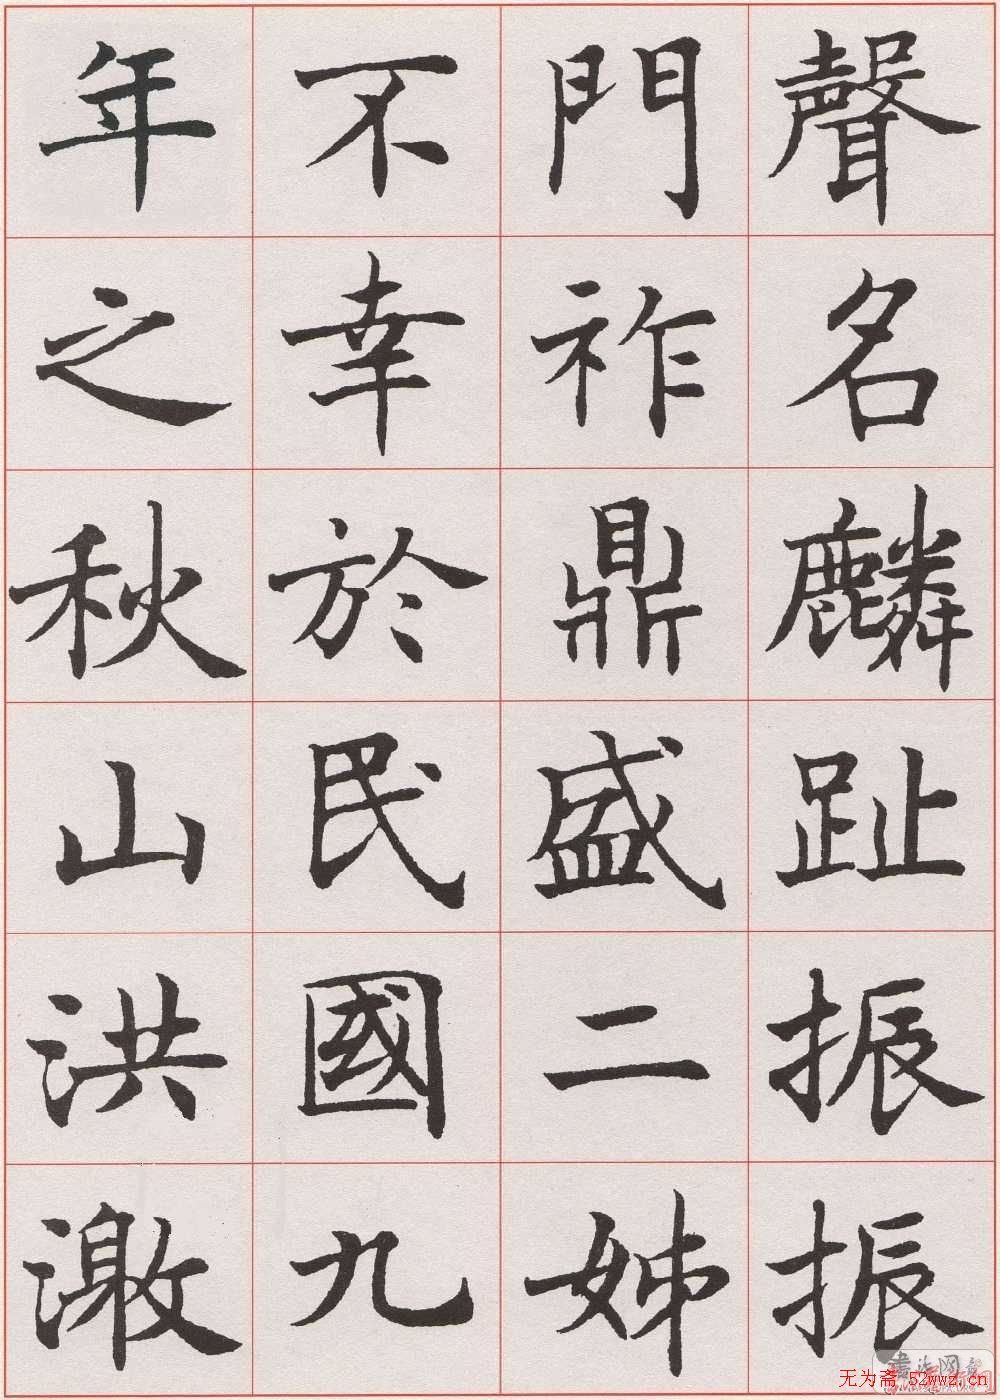 聲名麟趾振振
門祚鼎盛二姊
不幸於民國九
年之秋山洪激
无为斋 52wwz.cn